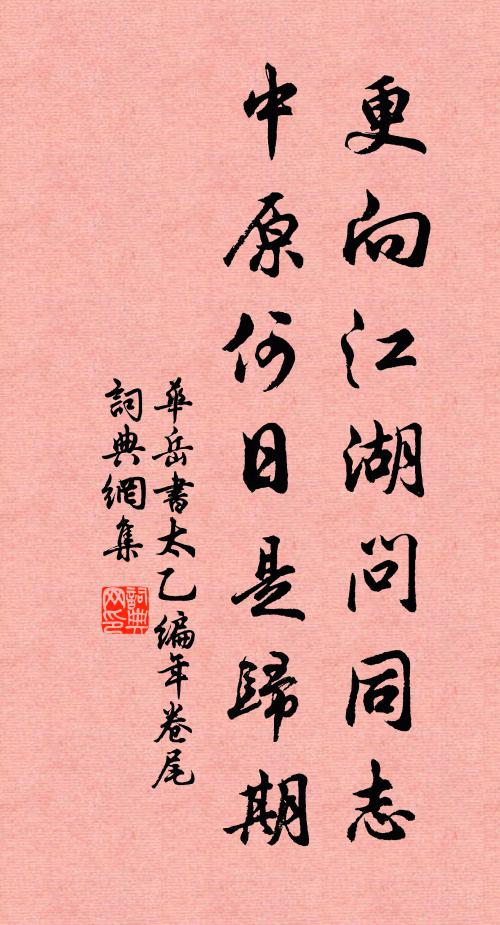 更向江湖問同志
中原何日是歸期
華岳書太乙編年卷尾
詞典網集
詞典网印